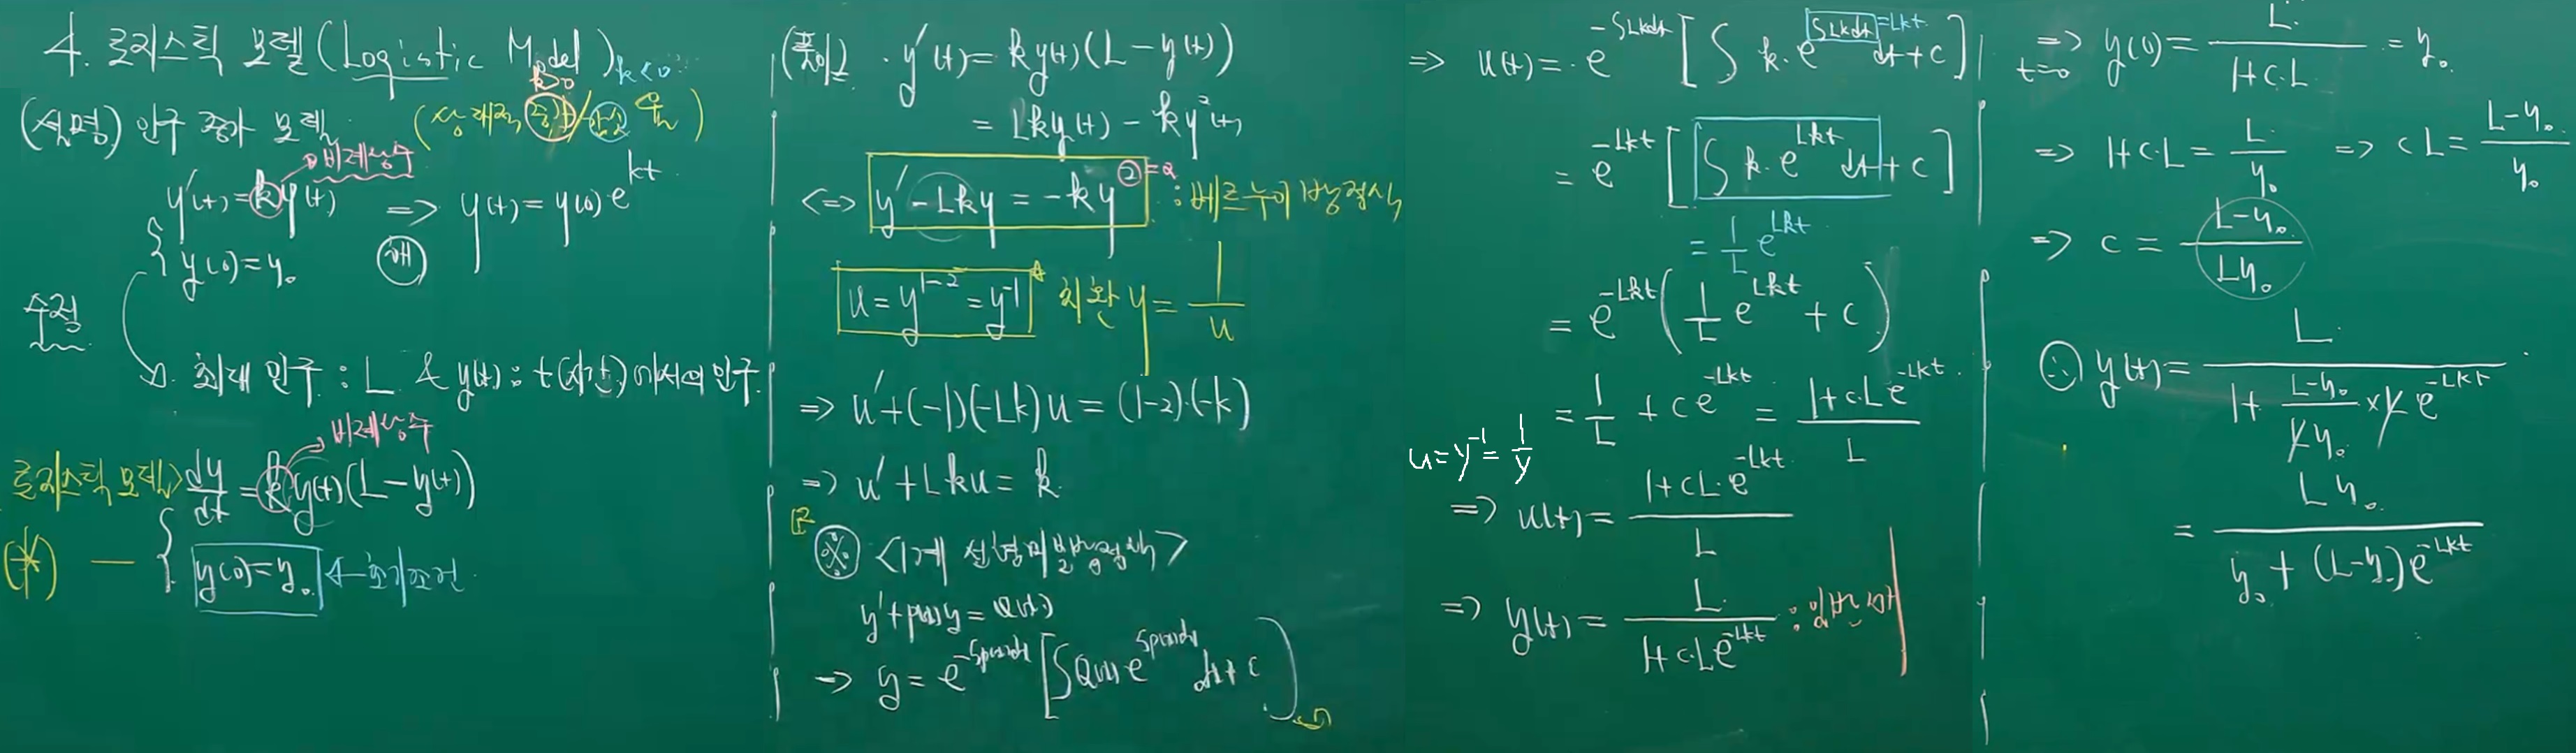 4. 로지스틱 모델 (Logistic Model)
k>0 k<0
(설명) 인구 증가 모델 (상대적 증가/감소율)
비례상수
y'(t) = k y(t) => y(t) = y(0) e^{kt}
y(0) = y₀ (해)
수정
최대 인구 : L & y(t) : t(시간)에서의 인구.
비례상수
로지스틱 모델> dy/dt = k y(t)(L - y(t))
(*) - y(0) = y₀ ← 초기조건
(풀이) · y'(t) = k y(t) (L - y(t))
= Lk y(t) - k y²(t)
<=> y' - Lky = -k y² ② = α : 베르누이 방정식
u = y^{1-2} = y^{-1} 치환 y = 1/u
=> u' + (-1)(-Lk)u = (1-2)·(-k)
=> u' + Lku = k
※ <1계 선형미분방정식>
y' + p(x)y = Q(x)
→ y = e^{-∫p(x)dx} [∫Q(x) e^{∫p(x)dx} dx + c]
=> u(t) = e^{-∫Lkdt} [∫ k· e^{∫Lkdt} dt + c] = Lkt
= e^{-Lkt} [∫ k· e^{Lkt} dt + c]
= 1/L e^{Lkt}
= e^{-Lkt} (1/L e^{Lkt} + c)
= 1/L + c e^{-Lkt} = (1 + c·L e^{-Lkt})/L
u = y^{-1} = 1/y
=> u(t) = (1 + cL· e^{-Lkt})/L
=> y(t) = L/(1 + c·L e^{-Lkt}) : 일반해
=> t=0 y(0) = L/(1 + C·L) = y₀
=> 1 + C·L = L/y₀ => cL = (L - y₀)/y₀
=> c = (L - y₀)/(L y₀)
∴ y(t) = L/(1 + (L - y₀)/(L y₀) × L e^{-Lkt})
= L y₀/(y₀ + (L - y₀) e^{-Lkt})